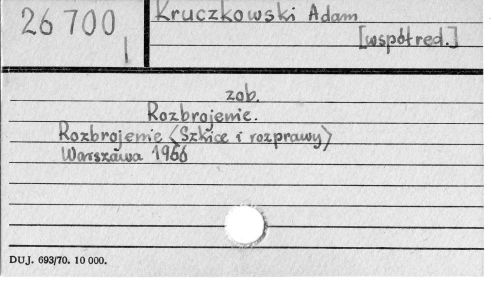 26 700
I
Kruczkowski Adam
[współred.]
zob.
Rozbrojenie.
Rozbrojenie <Szkice i rozprawy>
Warszawa 1966
DUJ. 693/70. 10 000.